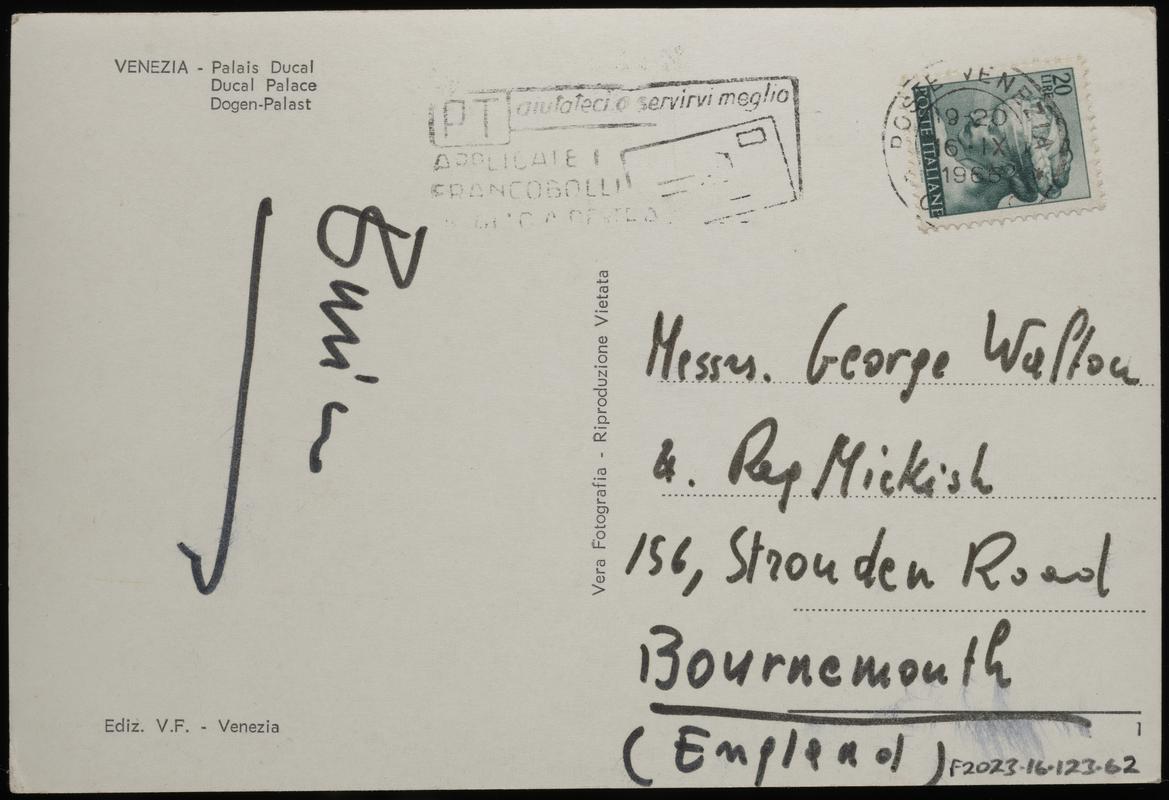 VENEZIA - Palais Ducal
Ducal Palace
Dogen-Palast
PT aiutateci a servirvi meglio
APPLICATE I
FRANCOBOLLI
A DESTRA
POSTE VENEZIA
19-20
16 IX
1965
20 LIRE
POSTE ITALIANE
Vera Fotografia - Riproduzione Vietata
Messrs. George Walton
&. Reg Mickish
156, Strouden Road
Bournemouth
(England)
Ediz. V.F. - Venezia
1
F2023-16-123-62